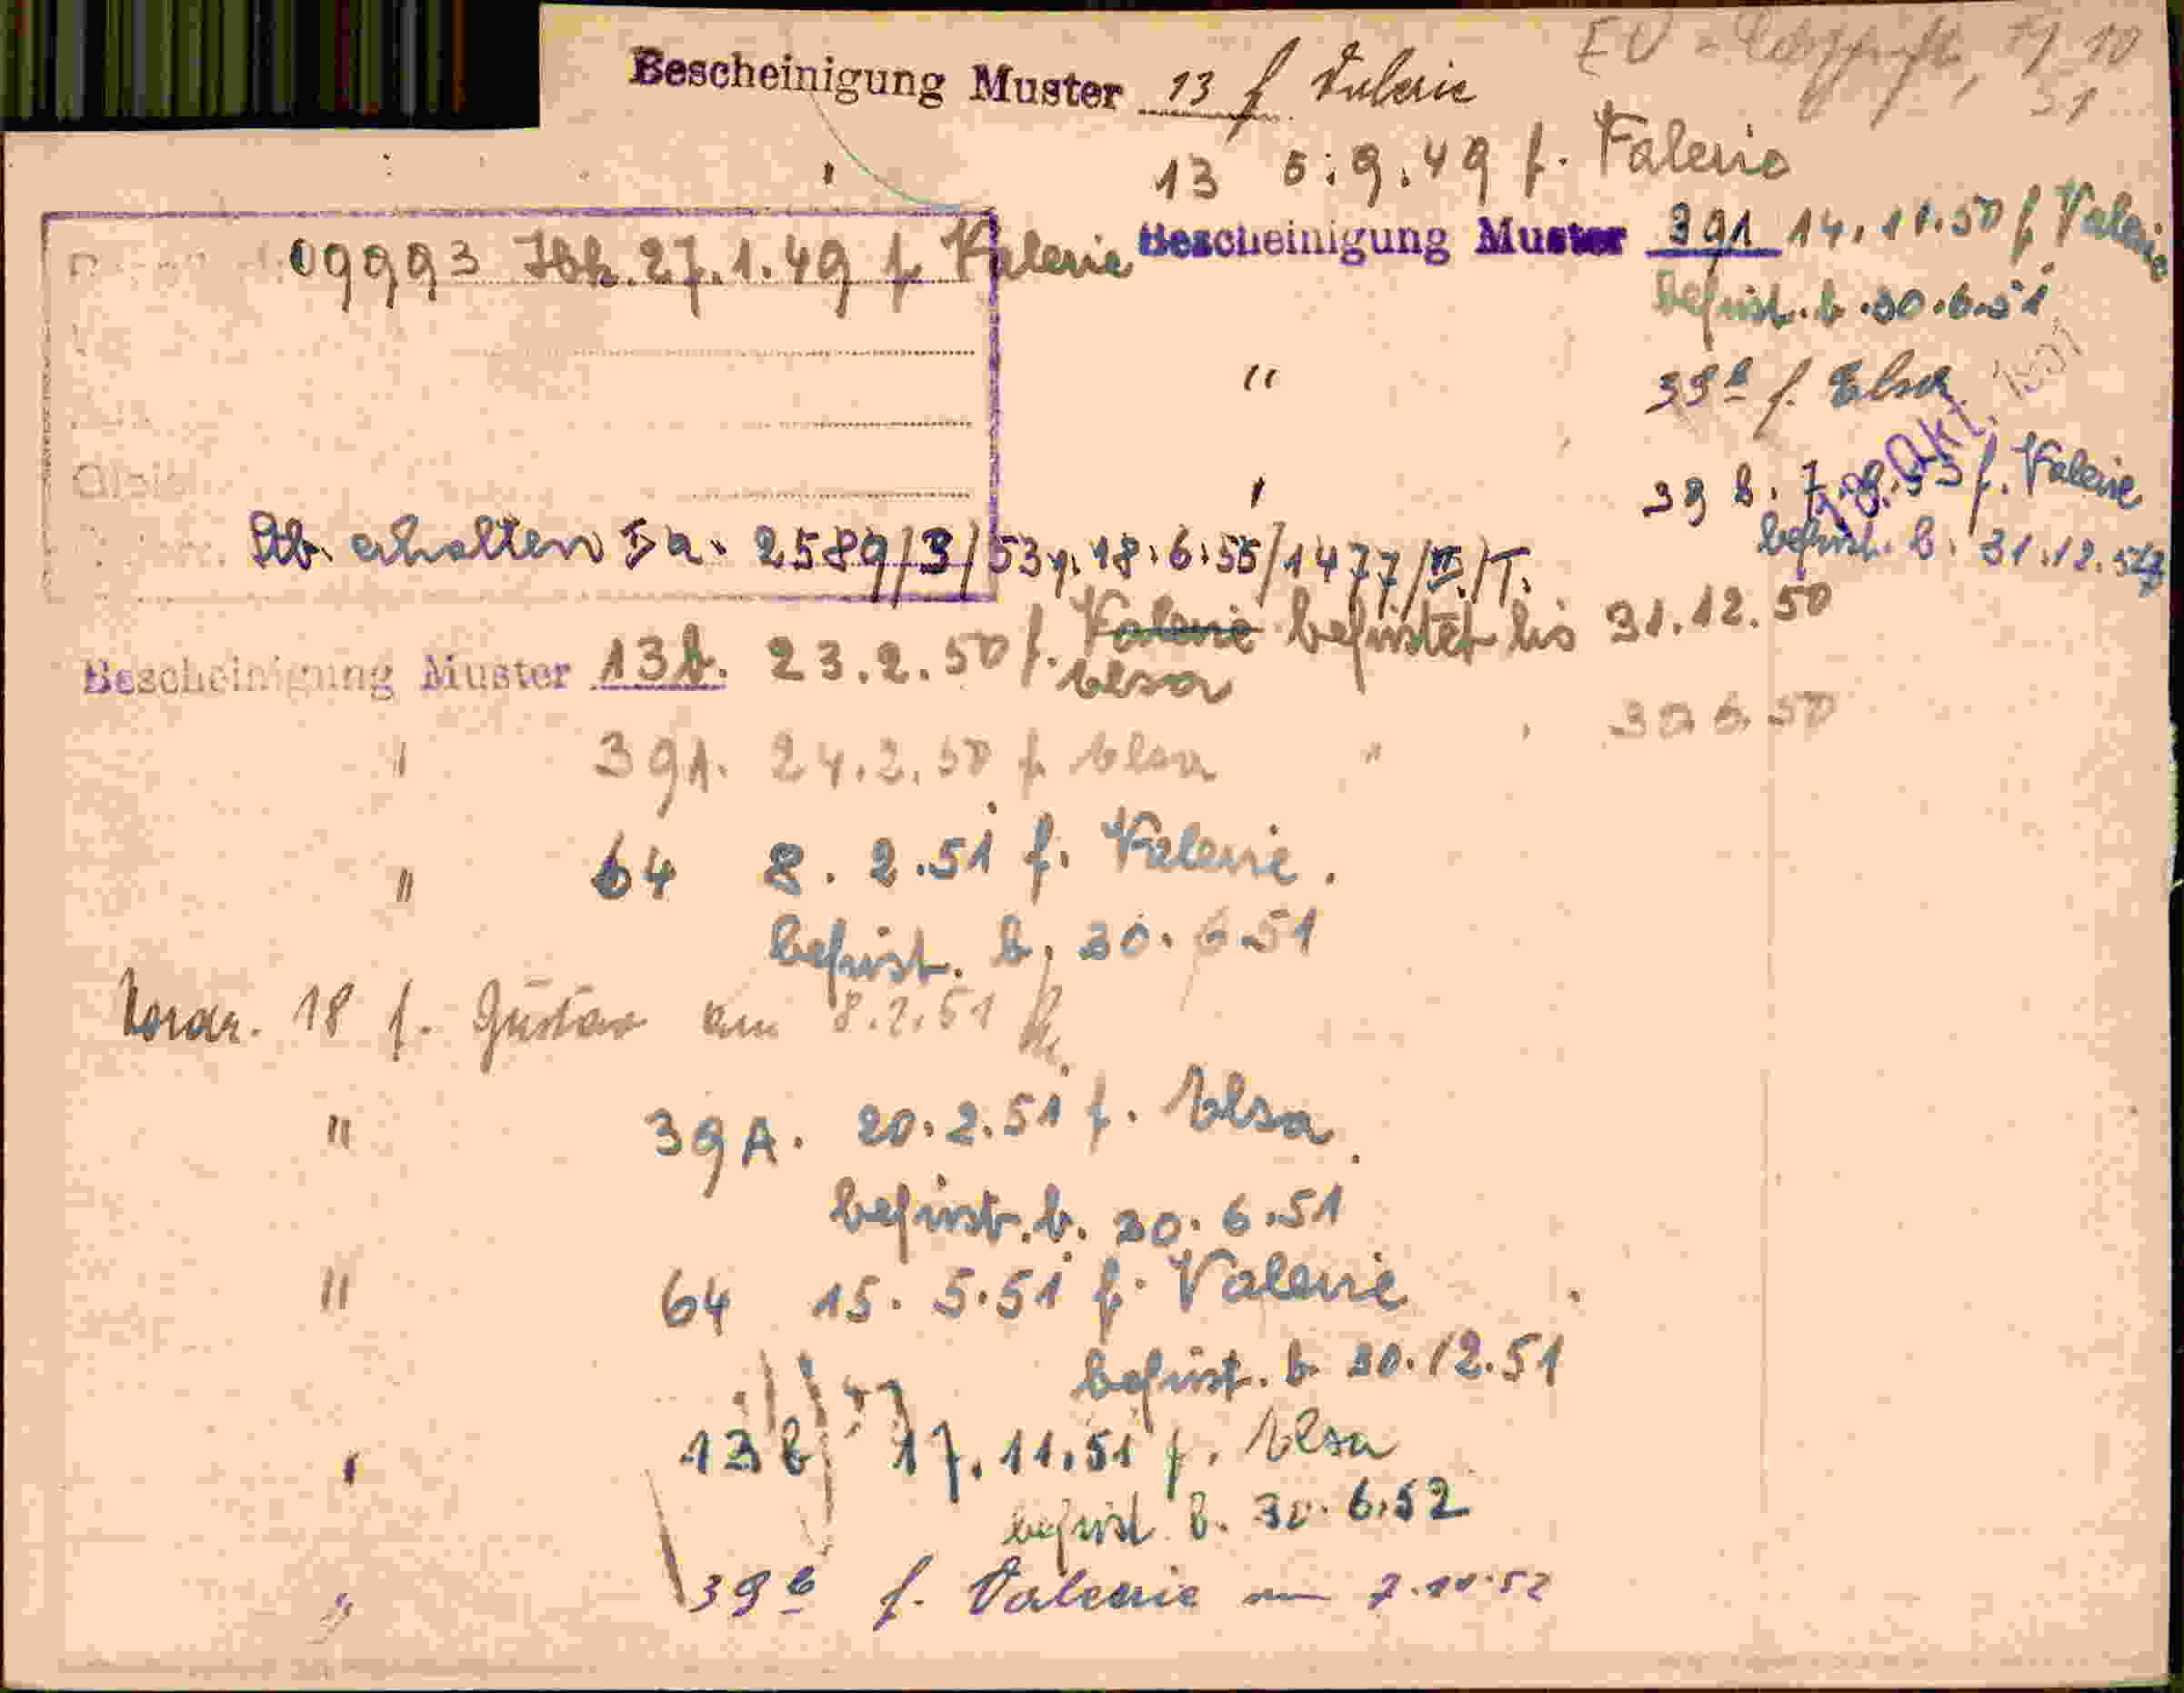 Bescheinigung Muster 13 f Valerie
EV
13 5.9.49 f. Valerie
09993 27.1.49 f Valerie
Bescheinigung Muster 39A 14.11.50 f Valerie
befrist. b. 30.6.51
" 39b f. Elsa
" 39 b. f. Valerie
befrist. b. 31.12.
erhalten 2589/3/53 v. 18.6.55/1477/III/T.
Bescheinigung Muster 13b. 23.2.50 f. Valerie befristet bis 31.12.50
Elsa
" 39A. 24.2.50 f. Elsa " " 30.6.50
" 64 8.2.51 f. Valerie.
befrist. b. 30.6.51
18 f. Gustav am 8.2.51
" 39A. 20.2.51 f. Elsa.
befrist. b. 30.6.51
" 64 15.5.51 f. Valerie
befrist. b. 30.12.51
" 13b 17.11.51 f. Elsa
befrist b. 30.6.52
" 39b f. Valerie am 7.10.52